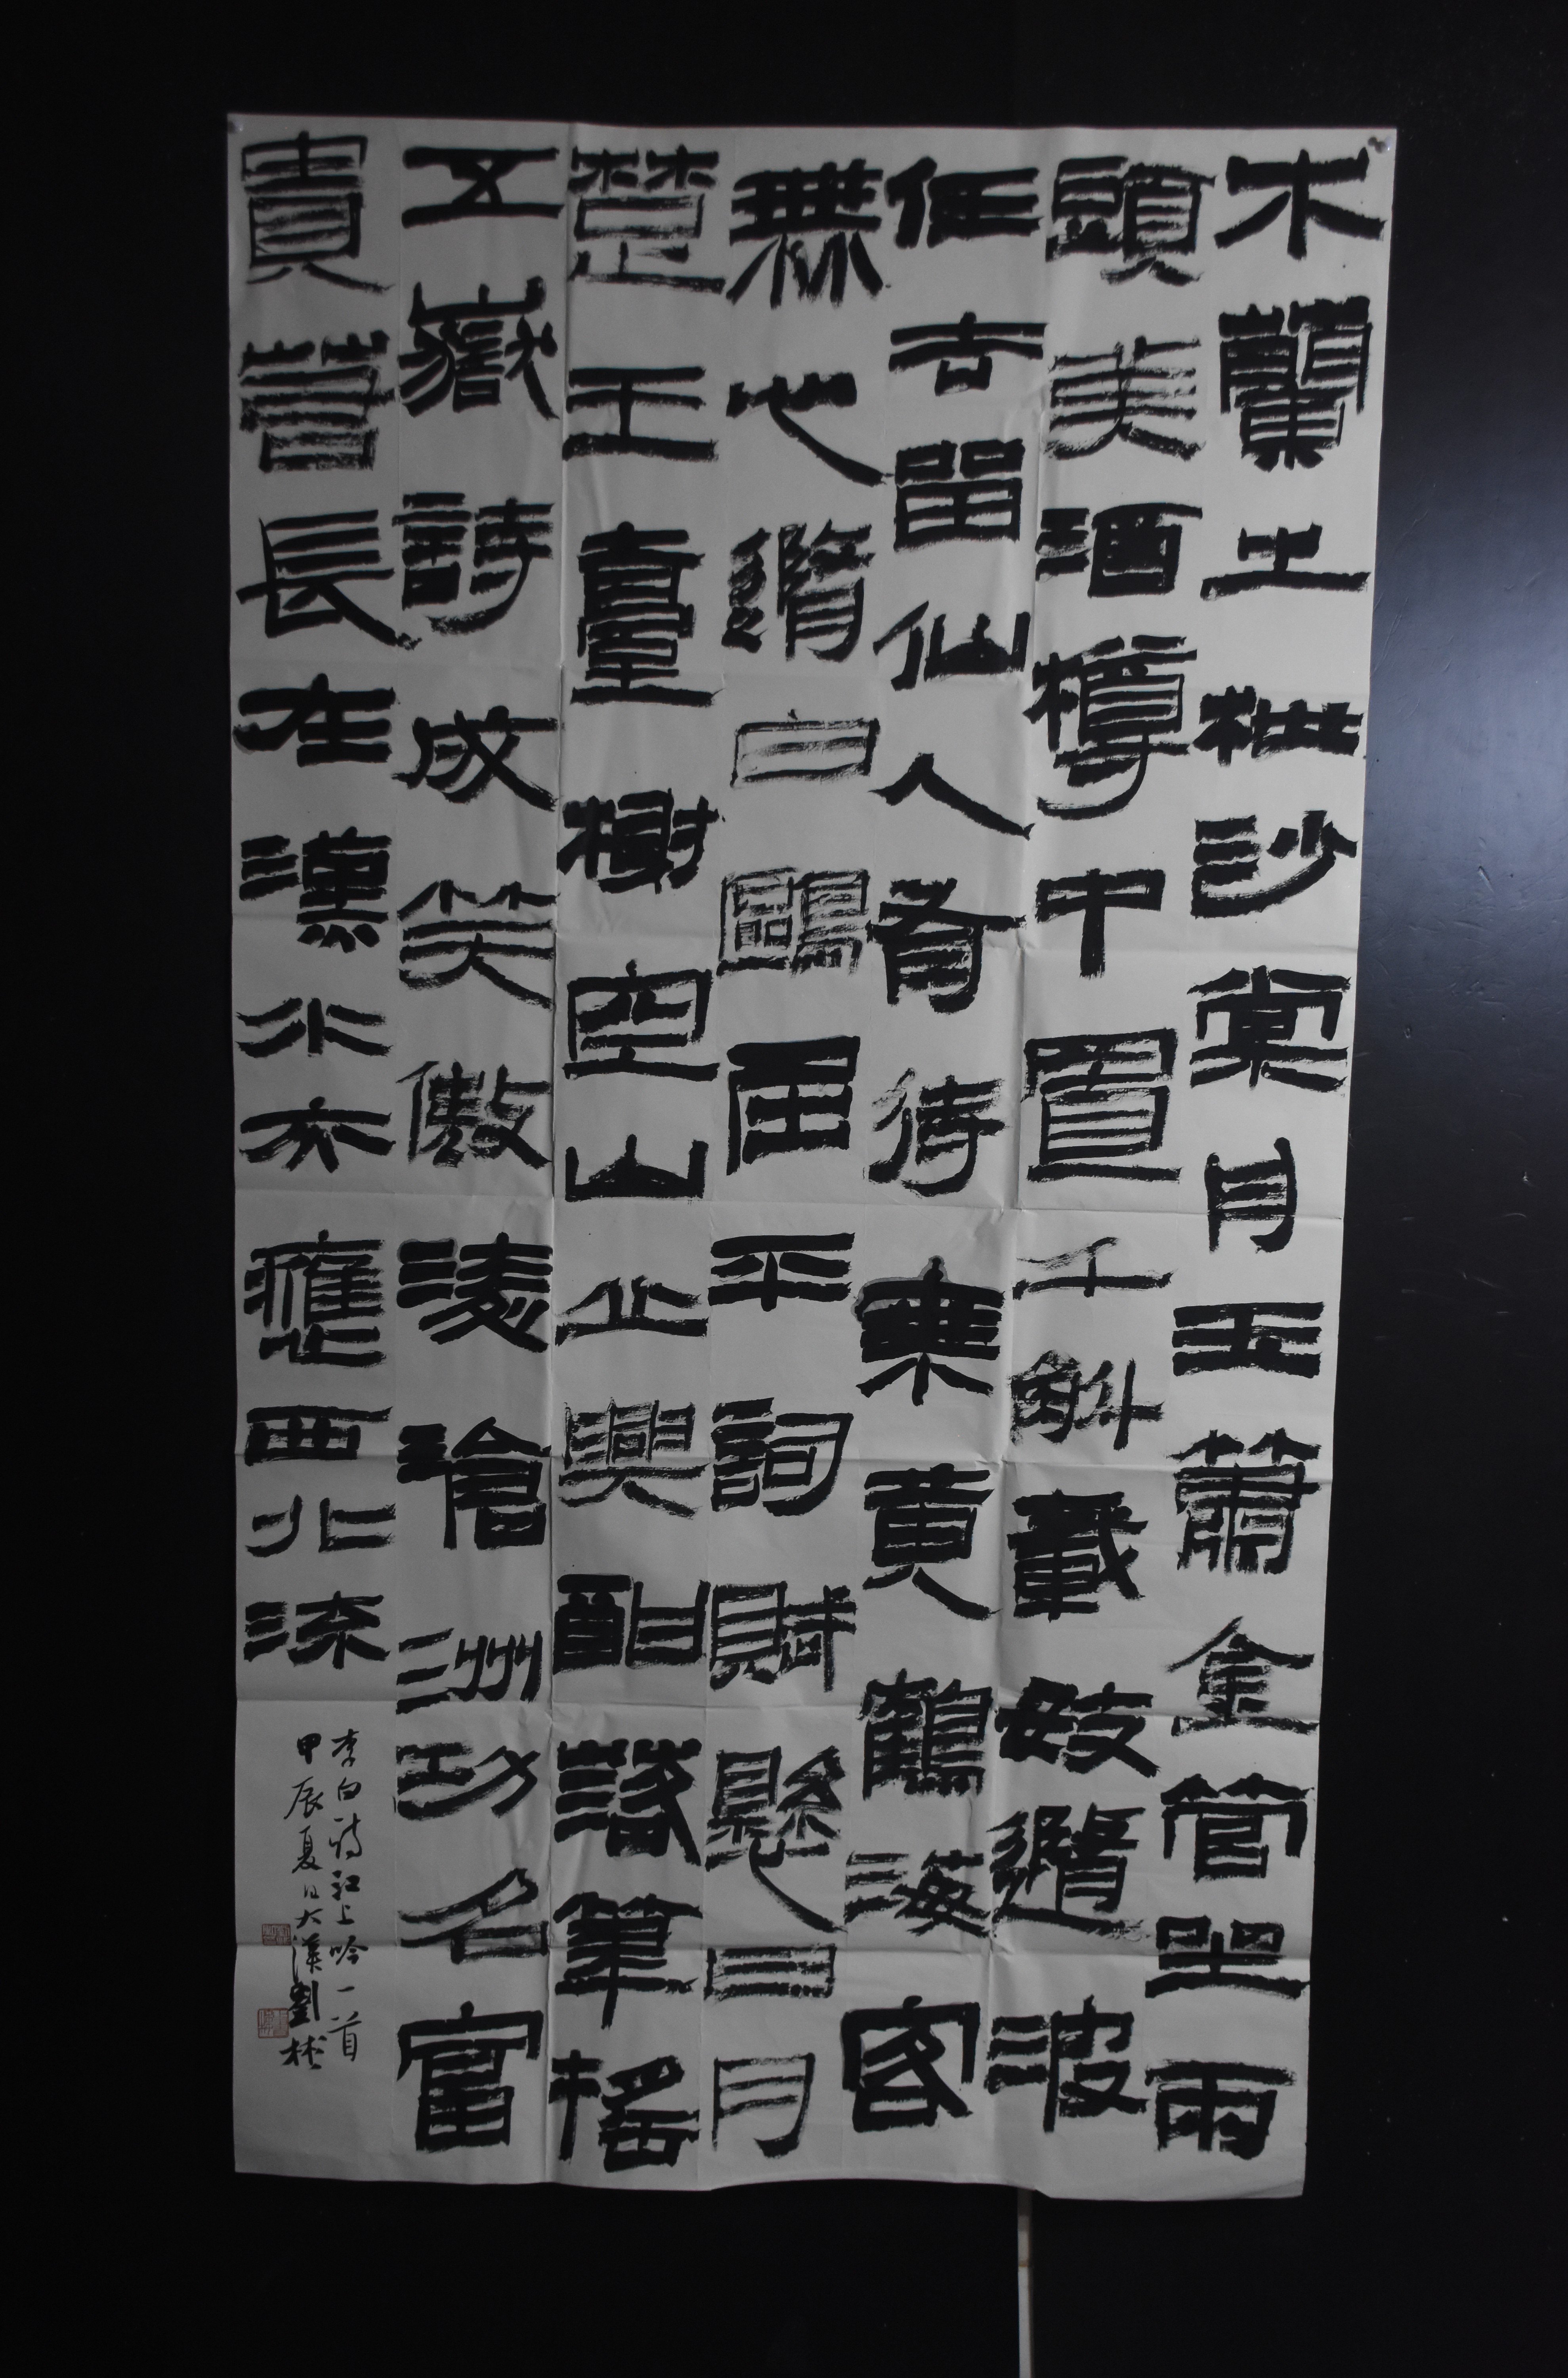 木蘭之枻沙棠舟玉簫金管坐兩
頭美酒樽中置千斛載妓隨波
任去留仙人有待乘黃鶴海客
無心隨白鷗屈平詞賦懸日月
楚王臺榭空山丘興酣落筆搖
五嶽詩成笑傲淩滄洲功名富
貴若長在漢水亦應西北流
李白詩江上吟一首
甲辰夏日大漢劉